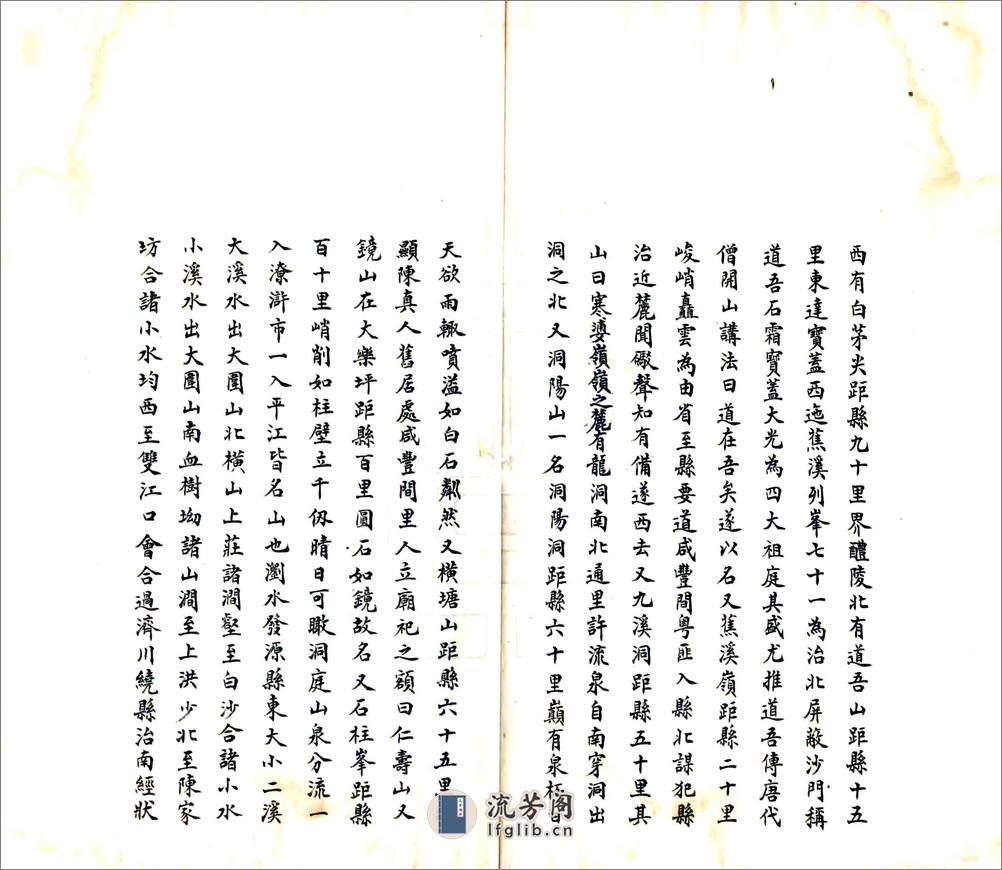 西有白茅尖距縣九十里界醴陵北有道吾山距縣十五
里東達寶蓋西迤蕉溪列峯七十一為治北屏蔽沙門稱
道吾石霜寶蓋大光為四大祖庭其盛尤推道吾傳唐代
僧開山講法曰道在吾矣遂以名又蕉溪嶺距縣二十里
峻峭矗雲為由省至縣要道咸豐間粵匪入縣北謀犯縣
治近麓聞礮聲知有備遂西去又九溪洞距縣五十里其
山曰寒婆嶺嶺之麓有龍洞南北通里許流泉自南穿洞出
洞之北又洞陽山一名洞陽洞距縣六十里巔有泉
天欲雨輒噴溢如白石粼然又橫塘山距縣六十五里
顯陳真人舊居處咸豐間里人立廟祀之額曰仁壽山又
鏡山在大樂坪距縣百里圓石如鏡故名又石柱峯距縣
百十里峭削如柱壁立千仞晴日可瞰洞庭山泉分流一
入潦滸市一入平江皆名山也瀏水發源縣東大小二溪
大溪水出大圍山北橫山上莊諸澗壑至白沙合諸小水
小溪水出大圍山南血樹坳諸山澗至上洪少北至陳家
坊合諸小水均西至雙江口會合過濟川繞縣治南經狀
流芳阁
lfglib.cn